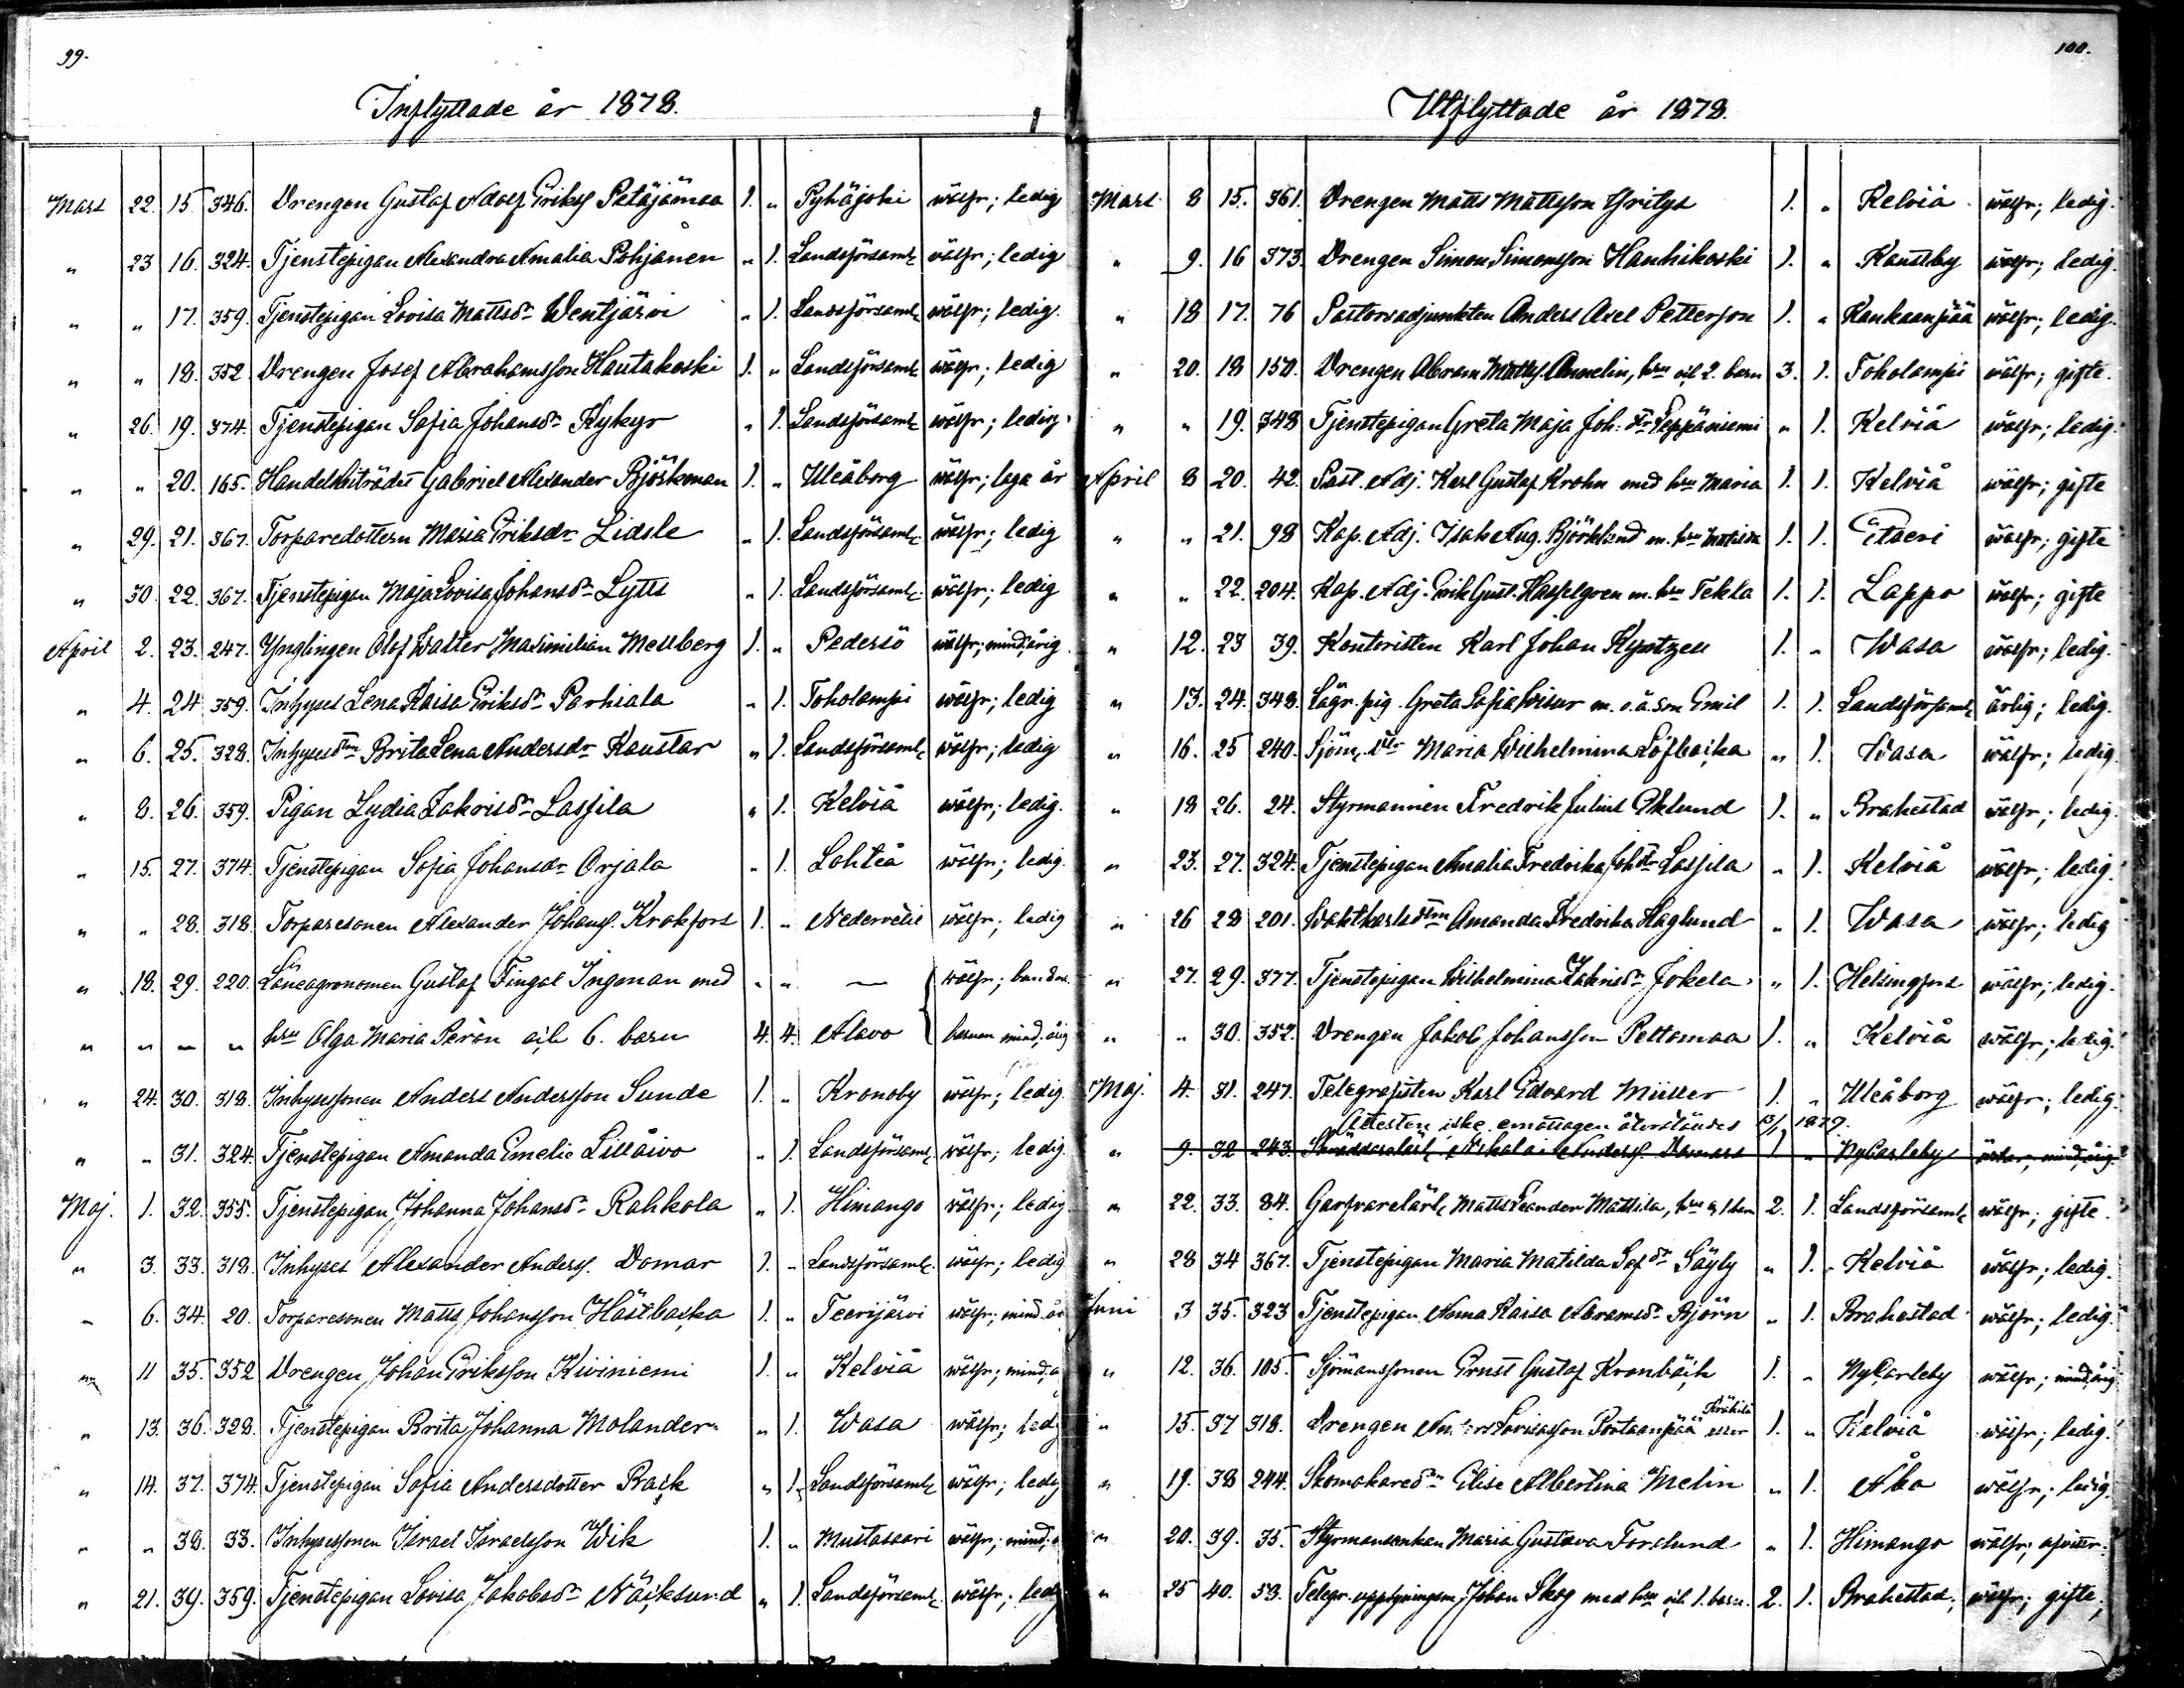 99.
Inflyttade år 1878.
Mars 22. 15. 346. Drengen Gustaf Adolf Eriksf Petäjämaa 1. " Pyhäjoki wälfr; ledig
" 23 16. 324. Tjenstepigan Alexandra Amalia Pohjanen " 1. Landsförsaml. wälfr; ledig
" " 17. 359. Tjenstepigan Lovisa Mattsdr Wentjärvi " 1. Landsförsaml. wälfr; ledig.
" " 18. 352. Drengen Josef Abrahamsson Hautakoski 1. " Landsförsaml. wälfr; ledig
" 26. 19. 374. Tjenstepigan Sofia Johansdr Kykyr " 1. Landsförsaml. wälfr; ledig.
" " 20. 165. Handelsbiträdet Gabriel Alexander Björkman 1. " Uleåborg wälfr; laga år
" 29. 21. 367. Torparedottern Maria Eriksdr Lidsle " 1. Landsförsaml. wälfr; ledig
" 30. 22. 367. Tjenstepigan Maja Lovisa Johansdr Lytts " 1. Landsförsaml. wälfr; ledig
April 2. 23. 247. Ynglingen Olof Walter Maximilian Mellberg 1. " Pedersö wälfr; mind.årig.
" 4. 24 359. Inhyses Lena Kaisa Eriksdr Parhiala " 1. Toholampi wälfr; ledig
" 6. 25. 328. Inhysesdtrn Brita Lena Andersdr Kaustar " 1. Landsförsaml. wälfr; ledig
" 8. 26. 359. Pigan Lydia Zakrisdr Lassila " 1. Kelviå wälfr; ledig.
" 15. 27. 374. Tjenstepigan Sofia Johansdr Orjala " 1. Lohteå wälfr; ledig.
" " 28. 318. Torparesonen Alexander Johansf. Krokfors 1. " Nedervetil wälfr; ledig
" 18. 29. 220. Läneagronomen Gustaf Fingal Ingman med " " — wälfr;
" " " " hru Olga Maria Perón och 6. barn 4. 4. Alavo barnen mind.årig
" 24. 30. 318. Inhysessonen Anders Andersson Sunde 1. " Kronoby wälfr; ledig.
" " 31. 324. Tjenstepigan Amanda Emelie Lillåivo " 1. Landsförsaml. wälfr; ledig.
Maj. 1. 32. 355. Tjenstepigan Johanna Johansdr Rahkola " 1. Himango wälfr; ledig
" 3. 33. 318. Inhyses Alexander Andersf. Domar 1. " Landsförsaml. wälfr; ledig
" 6. 34. 20. Torparesonen Matts Johansson Hästbacka 1. " Teerijärvi wälfr; mind.år
" 11 35. 352 Drengen Johan Eriksson Kiviniemi 1. " Kelviå wälfr; mind.
" 13. 36. 328. Tjenstepigan Brita Johanna Molander " 1. Wasa wälfr; ledig
" 14. 37. 374. Tjenstepigan Sofia Andersdotter Back " 1. Landsförsaml. wälfr; ledig
" " 38. 33. Inhysessonen Israel Israelsson Wik 1. " Mustasaari wälfr; mind.
" 21. 39. 359. Tjenstepigan Lovisa Jakobsdr Näcksund " 1. Landsförsaml. wälfr; ledig
100.
Utflyttade år 1878.
Mars 8 15. 361. Drengen Matts Mattsson Yritys 1. " Kelviå wälfr; ledig.
" 9. 16 373. Drengen Simon Simonsson Hanhikoski 1. " Kaustby wälfr; ledig.
" 18 17. 76 Pastorsadjunkten Anders Axel Petterson 1. " Kankaanpää wälfr; ledig.
" 20. 18 150. Drengen Abram Mattsf. Annelin, hru och 2. barn 3. 1. Toholampi wälfr; gifte.
" " 19. 348 Tjenstepigan Greta Maja Joh. dr Seppäniemi " 1. Kelviå wälfr; ledig.
April 8 20. 42. Past. Adj. Karl Gustaf Krohn med hru Maria 1. 1. Kelviå wälfr; gifte
" " 21. 98 Kap. Adj. Isak Aug. Björklund m. hru Matilda 1. 1. Etseri wälfr; gifte
" " 22. 204. Kap. Adj. Erik Gust. Hasselgren m. hru Tekla 1. 1. Lappo wälfr; gifte
" 12. 23 39. Kontoristen Karl Johan Kyntzell 1. " Wasa wälfr; ledig.
" 13. 24. 348. Lägr. pig. Greta Sofia Wisur m. o.ä. son Emil 1. 1. Landsförsaml. ärlig; ledig.
" 16. 25 240. Sjöm. dtr Maria Wilhelmina Löfbacka " 1. Wasa wälfr; ledig.
" 18 26. 24. Styrmannen Fredrik Julius Eklund 1. " Brahestad wälfr; ledig.
" 23. 27. 324. Tjenstepigan Amalia Fredrika Johdr Lassila " 1. Kelviå wälfr; ledig.
" 26 28 201. Waktkarlsdtrn Amanda Fredrika Haglund " 1. Wasa wälfr; ledig
" 27. 29. 377. Tjenstepigan Wilhelmina Zakrisdr Jokela " 1. Helsingfors wälfr; ledig.
" " 30. 352. Drengen Jakob Johansson Peltomaa 1. " Kelviå wälfr; ledig.
Maj. 4. 31. 247. Telegrafisten Karl Edvard Müller 1. " Uleåborg wälfr; ledig.
Attesten icke emottagen återstäldes 13/1 1879.
" 9. 32 243. Skräddarelärl. Nikolai Andersf. 1 " NyCarleby mind.årig
" 22. 33. 84. Garfvarelärl. Matts Leander Mattila, hru & 1 barn 2. 1. Landsförsaml. wälfr; gifte.
" 28 34 367. Tjenstepigan Maria Matilda Sefdr Säyly " 1. Kelviå wälfr; ledig.
Juni 3 35. 323 Tjenstepigan Anna Kaisa Abramsdr Björn " 1. Brahestad wälfr; ledig.
" 12. 36. 105. Sjömanssonen Ernst Gustaf Kronbäck 1. " NyCarleby wälfr; mind.årig
" 15. 37 318. Drengen Anders Lovisasson Portaanpää eller Kräkilä 1. " Kelviå wälfr; ledig.
" 19. 38 244. Skomakaredtrn Elise Albertina Melin " 1. Åbo wälfr; ledig.
" 20. 39. 35. Styrmansenkan Maria Gustava Forslund " 1. Himango wälfr; afvittr.
" 25 40. 53. Telegr. uppsyningsm. Johan Skog med hru och 1. barn. 2. 1. Brahestad; wälfr; gifte;